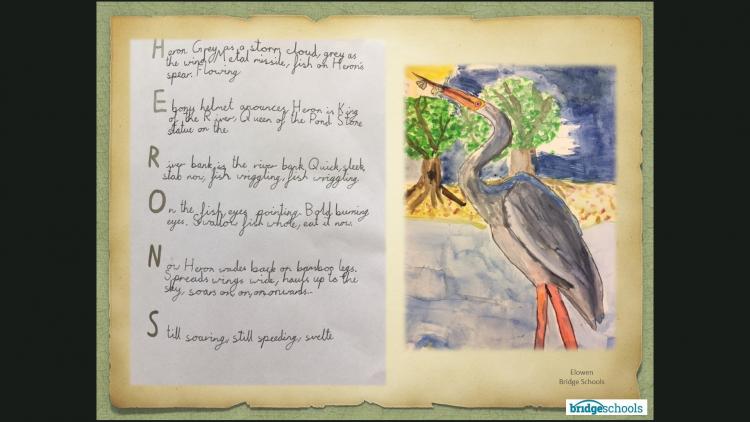 Heron Grey as a storm cloud, grey as
the wind, Metal missile, fish on Heron's
spear. Flowing
Ebony helmet anounces Heron is King
of the River, Queen of the Pond. Stone
statue on the
River bank, is the river bank. Quick, sleek,
stab now, fish wriggling, fish wriggling.
On the fish, eyes pointing. Bold burning
eyes. Swallow fish whole, eat it now.
Now Heron wades back on bamboo legs.
Spreads wings wide, hauls up to the
sky, soars on, on, on, onwards...
Still soaring, still speeding, svelte
Elowen
Bridge Schools
bridgeschools